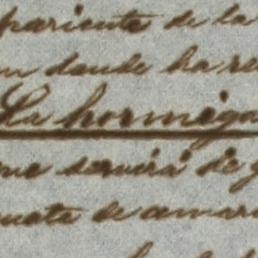 pariente de la
donde ha re
La hormiga
que servirá de g
de amar